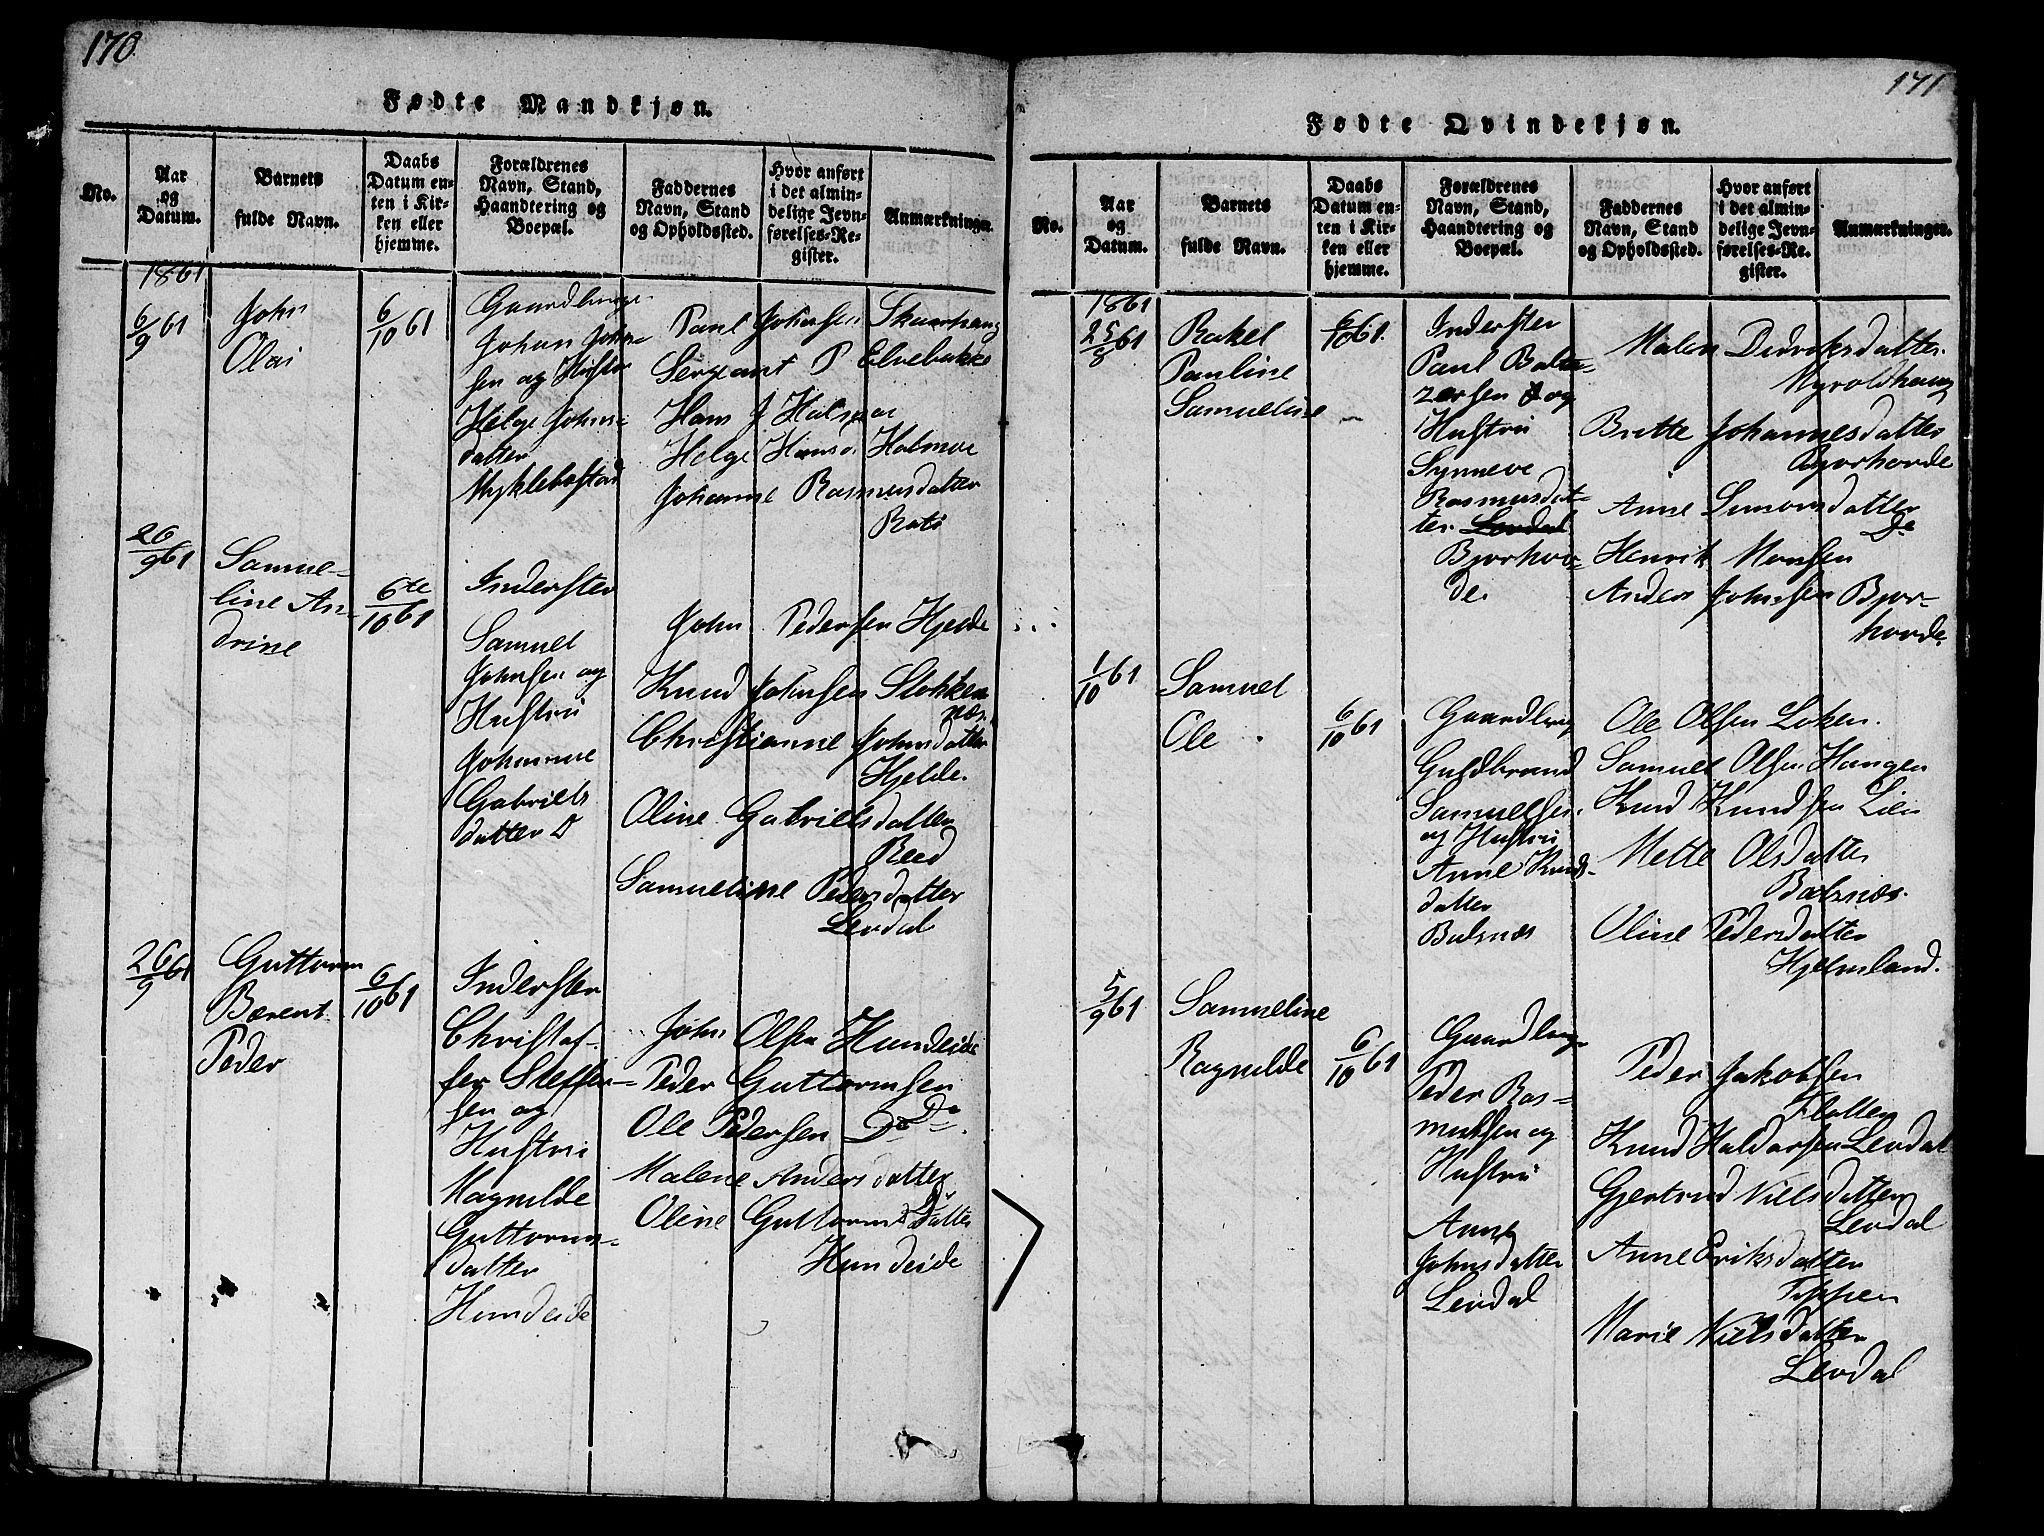 170
Fødte Mandkjøn.
No.
Aar og Datum.
Barnets fulde Navn.
Daabs Datum enten i Kirken eller hjemme.
Forældrenes Navn, Stand, Haandtering og Boepæl.
Faddernes Navn, Stand og Opholdssted.
Hvor anført i det almindelige Jevnførelses-Register.
Anmærkninger.
1861
6/9 61
John
Olai
6/10 61
Johan John-
sen og Hustru
Helge Johns-
datter
Myklebostad
Paul Johnsen Skaarhaug
Sergeant P Elvebakke
Hans J Halsnæ
Helge Hansd Halsnæ
Johanne Rasmusdatter
26/9 61
Samue-
line An-
drine
6te/10 61
Inderster
Samuel
Johnsen og
Hustru
Johanne
Gabriels
datter
John Pedersen Hjelde
Knud Johnsen Stokken
næs
Christianne Johnsdatter
Hjelde.
Oline Gabrielsdatter
Reed
Samueline Pedersdatter
Levdal
26/9 61
Guttorm
Bærent
Peder
6/10 61
Inderster
Christof-
fer Steffen-
sen og
Hustru
Magnilde
Guttorms-
datter
Hundeide
John Olsen Hundeide
Peder Guttormsen
Do
Ole Pedersen Do
Malene Andersdatter
Do
Oline Guttormsdatter
Hundeide
171
Fødte Qvindekjøn.
No.
Aar og Datum.
Barnets fulde Navn.
Daabs Datum enten i Kirken eller hjemme.
Forældrenes Navn, Stand, Haandtering og Boepæl.
Faddernes Navn, Stand og Opholdssted.
Hvor anført i det almindelige Jevnførelses-Register.
Anmærkninger.
1861
25/8 61
Rakel
Pauline
Samueline
6/10 61.
Inderster
Paul Balte-
zersen og
Hustru
Synneve
Rasmusdat-
ter Levdal
Bjorhov-
de
Malen Didriksdatter
Myroldhaug
Britte Johannesdatter
Bjorhovde
Anne Simonsdatter
Do
Henrik Monsen
Anders Johnsen Bjor-
hovde
1/10 61
Samuel
Ole
6/10 61
Guldbrand
Samuelsen
og Hustru
Anne Knuds-
datter
Balsnæs
Ole Olsen Loken.
Samuel Olsen Haugen
Knud Knudsen Lien
Mette Olsdatter
Balsnæs.
Oline Pedersdatter
Hjelmeland.
5/9 61
Samueline
Ragnilde
6/10 61
Peder Ras-
mussen og
Hustru
Anne
Johnsdatter
Levdal
Peder Jakobsen
Flatten
Knud Haldorsen Levdal
Gjertrud Nielsdatter
Levdal
Anne Eriksdatter
Tippen
Marie Nielsdatter
Levdal